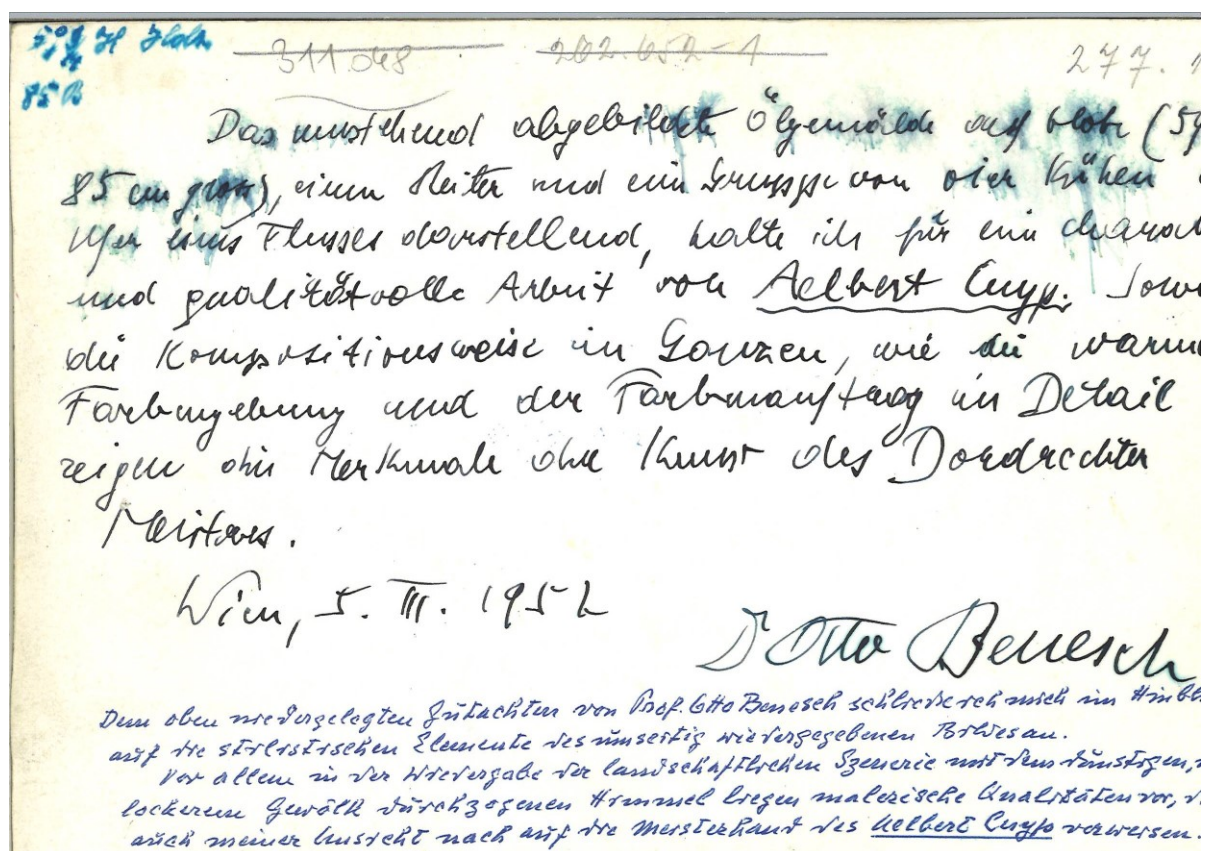 H Holz
85 B
311.048 202.652-1 277.
Das umstehend abgebildete Ölgemälde auf Holz (59
85 cm gross), einen Reiter und ein Gruppe von vier Kühen
Ufer eines Flusses darstellend, halte ich für ein charak
und qualitätvolle Arbeit von Aelbert Cuyp. Sowo
die Kompositionsweise im Ganzen, wie die warme
Farbengebung und der Farbenauftrag im Detail
zeigen die Merkmale der Kunst des Dordrechter
Meisters.
Wien, 5. III. 1952
Dr Otto Benesch
Dem oben niedergelegten Gutachten von Prof. Otto Benesch schließe ich mich im Hinbl
auf die stilistischen Elemente des umseitig wiedergegebenen Bildes an.
Vor allem in der Wiedergabe der landschaftlichen Szenerie mit dem dunstigen,
lockerem Gewölk durchzogenen Himmel liegen malerische Qualitäten vor,
auch meiner Ansicht nach auf die Meisterhand des Aelbert Cuyp verweisen.